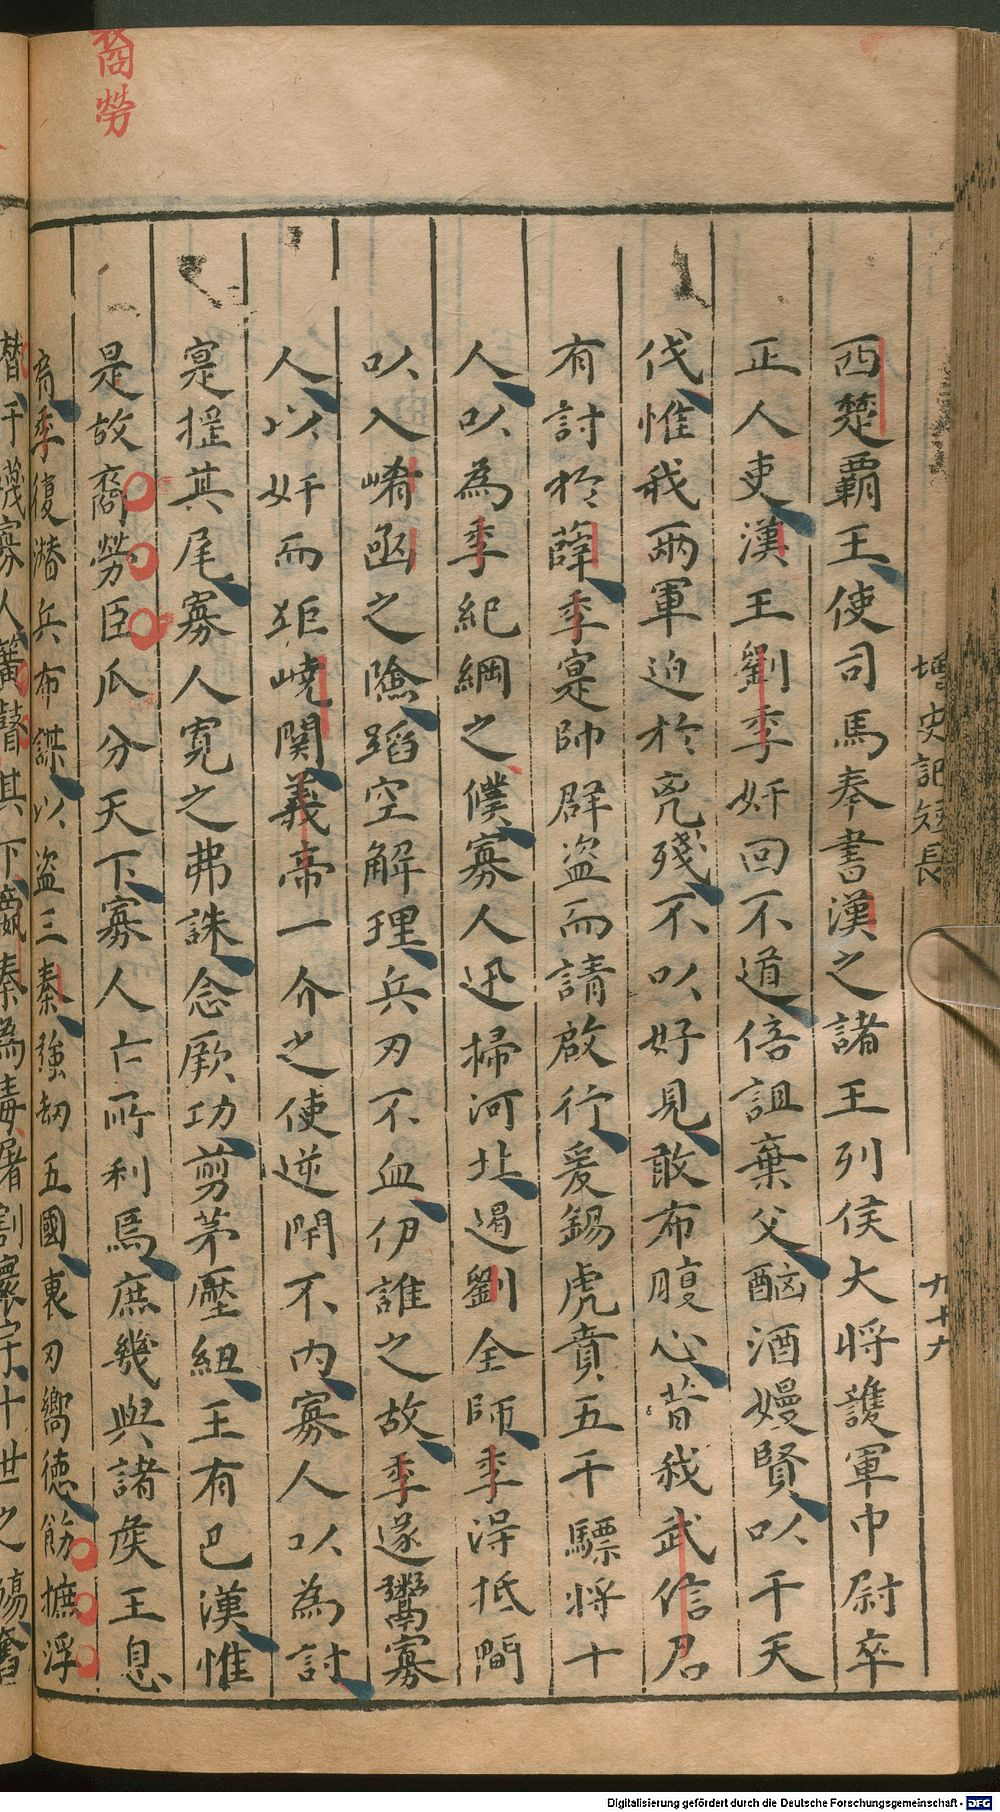 裔勞
增史記短長
九十六
西楚覇王使司馬奉書漢之諸王列侯大将護軍中尉卒
正人吏漢王劉季奸回不道倍詛棄父酗酒嫚賢以干天
伐惟我兩軍迫於兇殘不以好見敢布腹心昔我武信君
有討於薛季寔帥群盜而請啟行爰錫虎賁五千驃将十
人以為季紀綱之僕寡人迅掃河北遏劉全師季得抵間
以入崤函之險蹈空解理兵刃不血伊誰之故季遂鬻寡
人以奸而距嶢関義帝一介之使逆閉不内寡人以為討
寔揺其尾寡人寛之弗誅念厥功剪茅壓紐王有巴漢惟
是故裔勞臣瓜分天下寡人亡所利焉庶幾與諸侯王息
肩季復潜兵布諜以盜三秦強劫五國裏刃嚮徳筋摭浮
寡人其下秦為毒屠割寰宇十世之
Digitalisierung gefördert durch die Deutsche Forschungsgemeinschaft - DFG